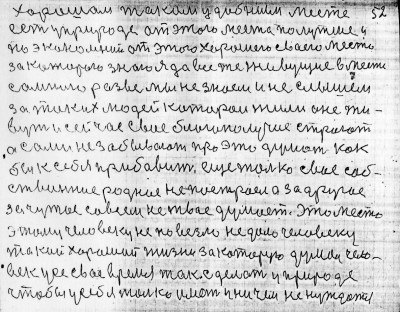 хорашом таком удобним месте 52
есть уприроде от этого места получше и
по экономней от этого хорошего своего места
за которого знаю я да все те живущие вместе
самною разве мы не знаем и не слышем
за таких людей котораи жили оне жи-
вут и сейчас свое благополучие строют
а сами незабывают про это думат как
бы ксебе прибавить, еще только свое соб-
ственное родное непостроел а за другое
за чужое совсем не твое думает. Это место
этому человеку не повезло недало человеку
такой хорошай жизни за каторую думал чело-
век у ее свое время так сделат уприроде
чтобы усебя только имат и ничем не нуждатся